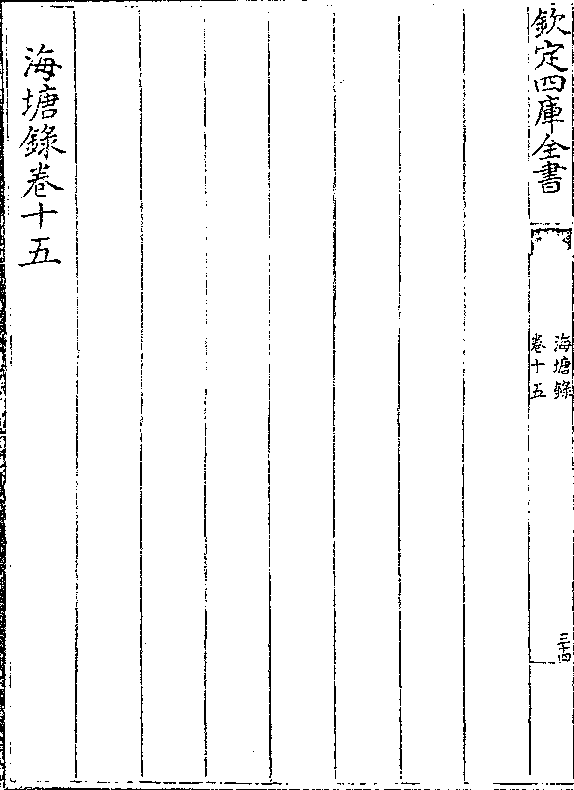 欽定四庫全書
海塘錄
卷十五
三十四
海塘錄卷十五